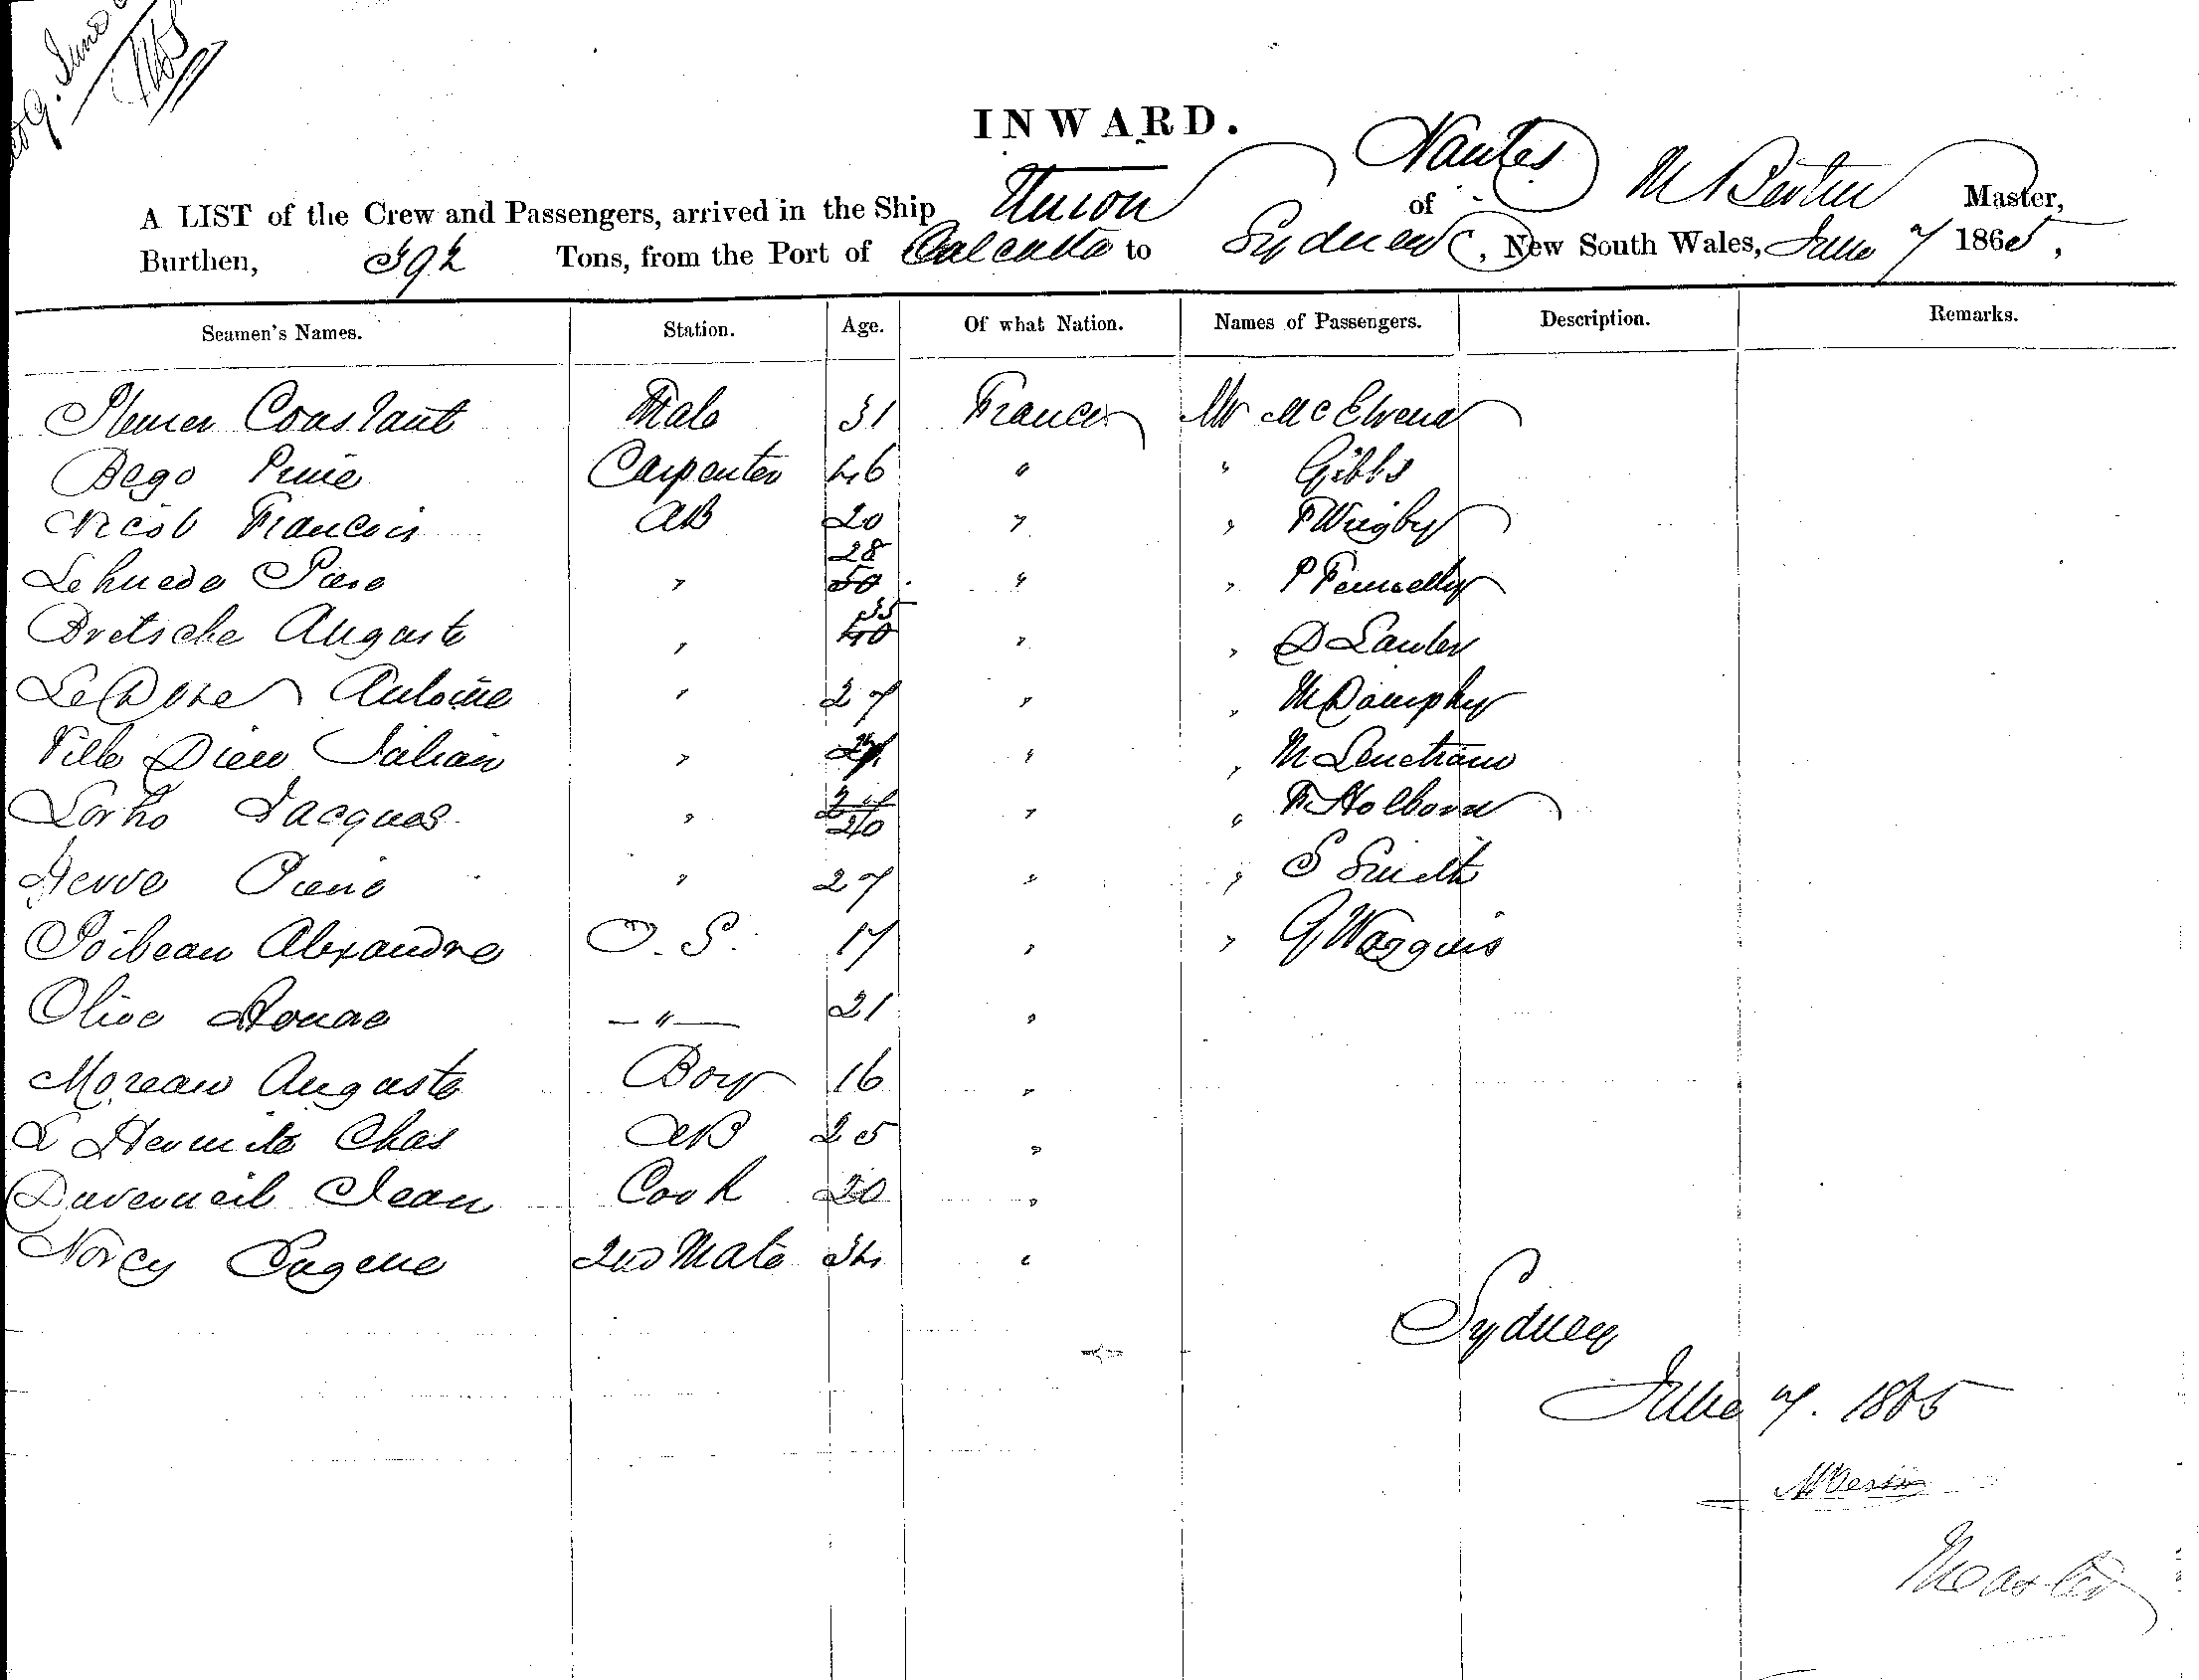 June
INWARD.
A LIST of the Crew and Passengers, arrived in the Ship Union of Nantes Master,
Burthen, 392 Tons, from the Port of Calcutta to Sydney, New South Wales, June 7 1865,
Seamen's Names. Station. Age. Of what Nation. Names of Passengers. Description. Remarks.
Constant Mate 31 France Mr McElvena
Bego Carpenter 46 " " Gibbs
Nicol Francois AB 20 " "
Lehuede 28 50 " " " P
Auguste " 35 40 " " D Lawler
Antoine " 27 " " M Damphy
Ville Dieu " " " M
Lorho Jacques " 20 " "
Herve " 27 " " S Smith
Poibeau Alexandre O.S. 17 " " G
Olive — " — 21 "
Moreau Auguste Boy 16 "
L Hermite Chas AB 25 "
Duverneil Jean Cook 20 "
Norcy Eugene 2nd Mate 34 "
Sydney
June 7. 1865
Master